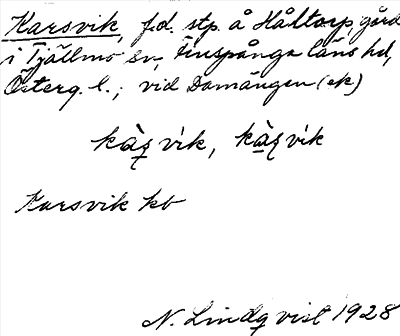 Karsvik, f.d. stp. å Håltorp gård
i Tjällmo sn, Finspånga läns hd,
Österg. l.; vid Damängen (ek)
kàʂvik, kàʂvik
Karsvik kb
N. Lindqvist 1928